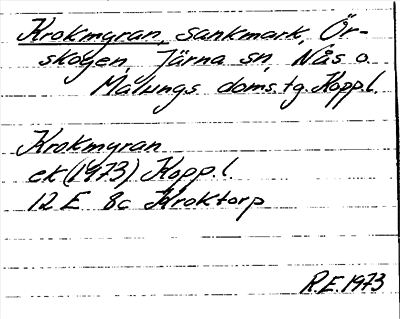 Krokmyran, sankmark, Ör-
skogen, Järna sn, Nås o.
Malungs doms.tg Kopp.l.
Krokmyran
ek (1973) Kopp.l.
12 E 8c Kroktorp
R.E. 1973